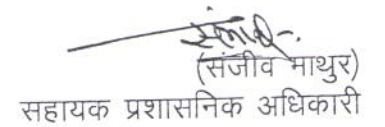 (संजीव माथुर)
सहायक प्रशासनिक अधिकारी